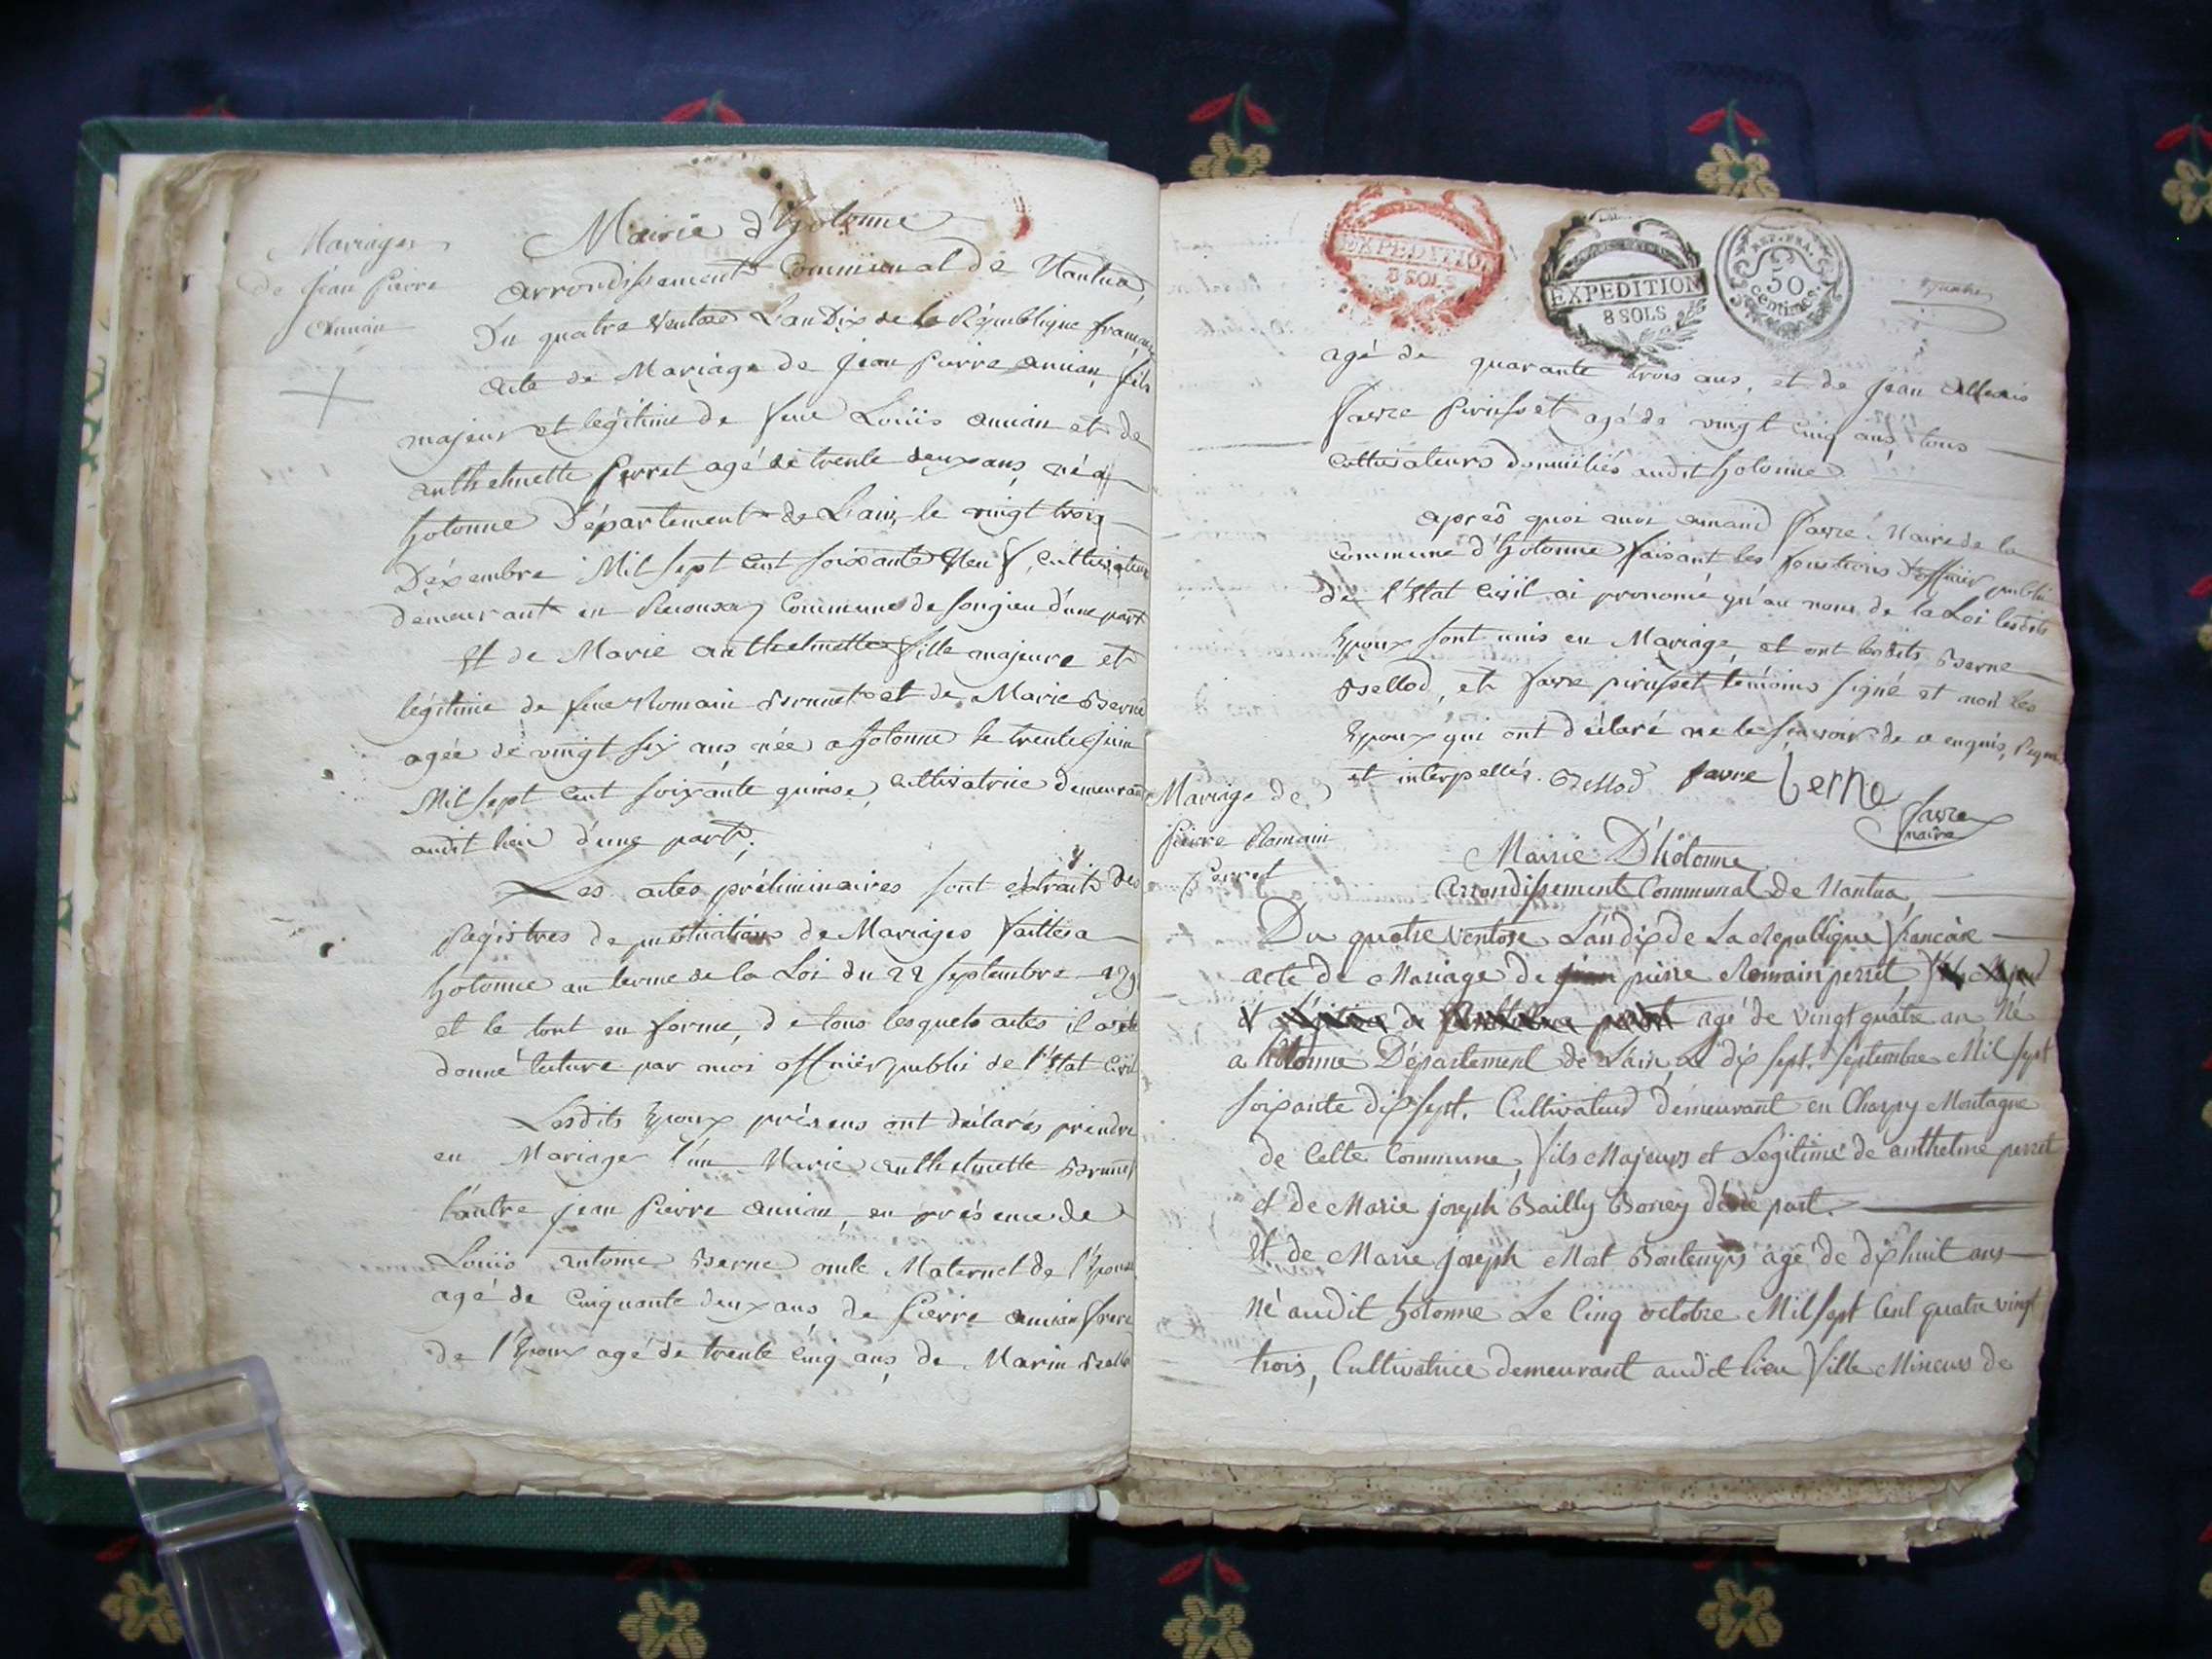 Mariages
de Jean Pierre
Annian
Mairie d'hotonne
arrondissement Communal de Nantua,
Du quatre Ventose L'an Dix de la République française
acte de Mariage de Jean Pierre annian, fils
majeur et légitime de feu Loüis annian et de
anthelmette Perret agé de trente deux ans, né a
hotonne Département de L'ain, le vingt trois
Déxembre Mil sept cent soixante Neuf, cultivateur
demeurant en Commune de songieu d'une part
Et de Marie anthelmette fille majeure et
légitime de feu Romain Brunet et de Marie Berne
agée de vingt six ans née a hotonne le trente Juin
Mil sept cent soixante quinse, cultivatrice demeurant
audit lieu d'une part.
Les actes préliminaires sont extraits des
Régistres de publications de Mariages faittes a
hotonne au terme de la Loi du 22 septembre
et le tout en forme, de tous lesquels actes il a été
donné lecture par moi officier public de l'Etat Civil
Lesdits Epoux présens ont déclarés prendre
en Mariage l'un Marie anthelmette Brunet
l'autre jean Pierre annian, en présence de
Loüis antoine Berne oncle Maternel de l'Epouse
agé de Cinquante deux ans, de Pierre annian frere
de l'Epoux agé de trente cinq ans, de Marin Bellod
EXPEDITION
8 SOLS
EXPEDITION
8 SOLS
REP. FRA.
50
centimes.
agé de quarante trois ans, et de Jean
favre Pirusset agé de vingt cinq ans, tous
cultivateurs domiciliés audit hotonne.
après quoi moi amand favre Maire de la
Commune d'hotonne faisant les fonctions d'officier public
de l'Etat Civil ai prononcé qu'au nom de la Loi lesdits
Epoux sont unis en Mariage, et ont lesdits Berne
Bellod, et favre pirusset témoins signé et non les
Epoux qui ont déclaré ne le sçavoir de ce enquis, Requis
et interpellés. Bellod favre berne
favre
maire
Mariage de
Pierre Romain
Perret
Mairie D'hotonne
Arrondissement Communal de Nantua,
Du quatre ventose L'an dix de La Republique francaise
acte de Mariage de jean pierre Romain perret, fils Majeur
et Légitime de Anthelme perret agé de vingt quatre an, Né
a hotonne Département de L'ain, Le dix sept. septembre Mil sept
soixante dix sept. Cultivateur demeurant en Charpy Montagne
de Cette Commune, fils Majeurs et Légitime de anthelme perret
et de Marie joseph Bailly Borrey d'une part.
Et de Marie joseph Mort Bontemps agé de dix huit ans
né audit hotonne Le Cinq octobre Mil sept Cent quatre vingt
trois, Cultivatrice demeurant audit lieu fille Mineurs de